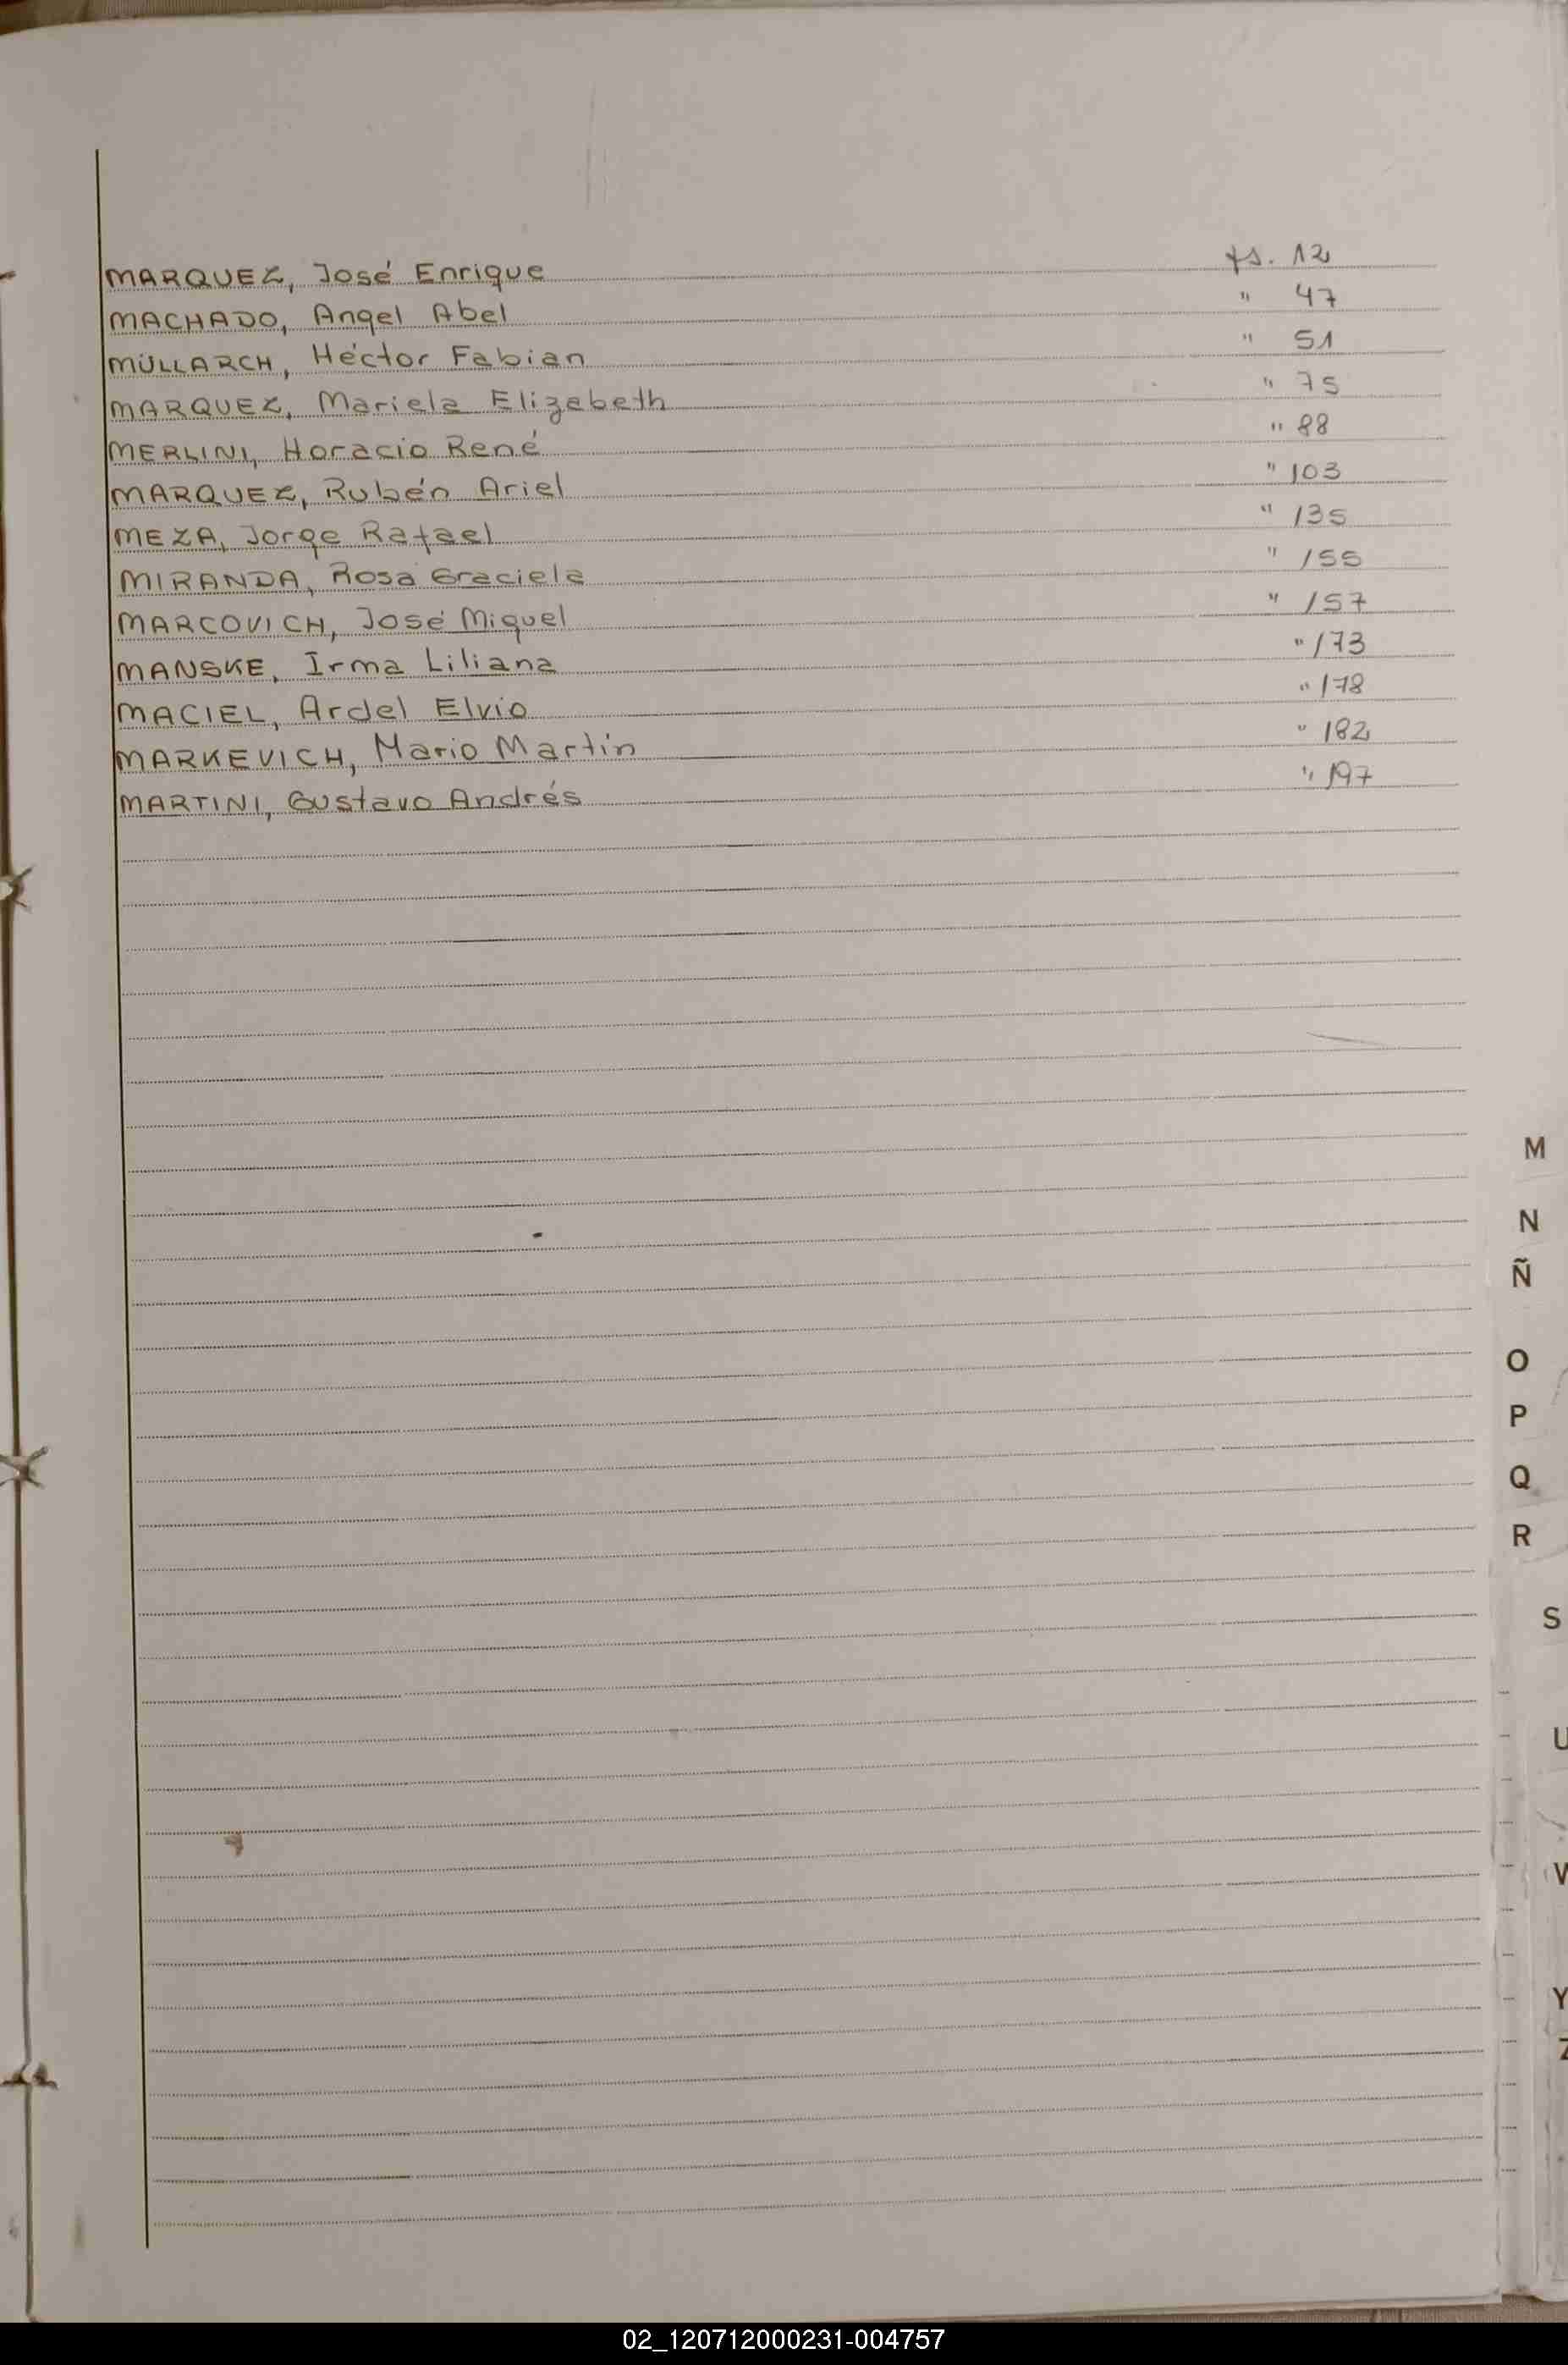 MARQUEZ, José Enrique fs. 12
MACHADO, Angel Abel " 47
MÜLLARCH, Héctor Fabian " 51
MARQUEZ, Mariela Elizabeth " 75
MERLINI, Horacio René " 88
MARQUEZ, Rubén Ariel " 103
MEZA, Jorge Rafael " 135
MIRANDA, Rosa Graciela " 155
MARCOVICH, José Miguel " 157
MANSKE, Irma Liliana " 173
MACIEL, Ardel Elvio " 178
MARKEVICH, Mario Martín " 182
MARTINI, Gustavo Andrés " 197
M
N
Ñ
O
P
Q
R
S
U
V
Y
Z
02_120712000231-004757